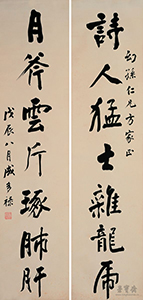 幼孫仁兄方家正
詩人猛士雜龍虎
月斧雲斤琢肺肝
戊辰八月成多祿